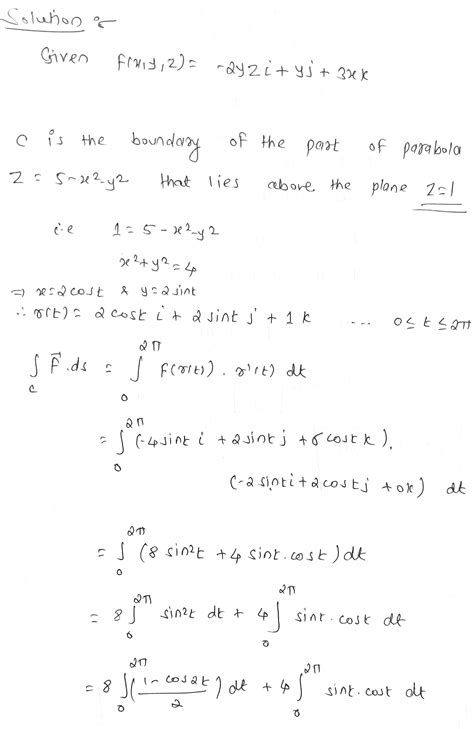 Solution :-
Given F(x,y,z) = -2yz i + y j + 3x k
C is the boundary of the part of parabola
Z = 5 - x² - y² that lies above the plane Z=1
i.e 1 = 5 - x² - y²
x² + y² = 4
⇒ x = 2cost & y = 2sint
∴ r(t) = 2cost i + 2sint j + 1k ... 0 ≤ t ≤ 2π
∫_C F⃗.ds = ∫_0^{2π} F(r(t)) . r'(t) dt
= ∫_0^{2π} (-4sint i + 2sint j + 6cost k).
(-2sint i + 2cost j + 0k) dt
= ∫_0^{2π} (8 sin²t + 4 sint.cost) dt
= 8 ∫_0^{2π} sin²t dt + 4 ∫_0^{2π} sint.cost dt
= 8 ∫_0^{2π} (1-cos2t / 2) dt + 4 ∫_0^{2π} sint.cost dt